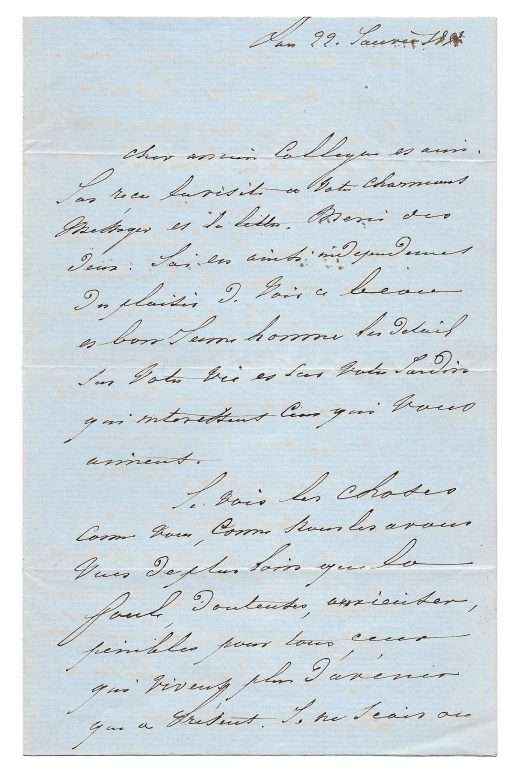 22. Janvier
cher ancien Collegue et ami.
J'ai reçu la visite de Votre Charmant
Messager et la lettre. Merci des
deux. J'ai eu ainsi independament
Du plaisir D. Voir ce beau
et bon Jeune homme les Details
Sur Votre vie et Sur Votre Jardin
qui interessent Ceux qui Vous
aiment.
Je Vois les choses
Comme Vous, Comme Nous les avons
Vues De plus loin que la
foule, Douteuses, anxieuses,
penibles pour tous ceux
qui vivent plus D'avenir
que de Présent. Je ne Scais ou